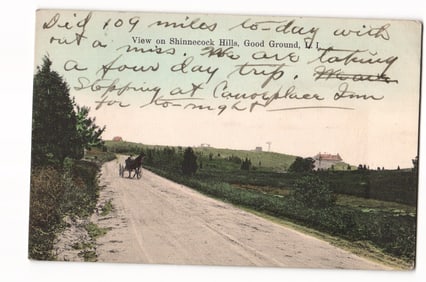 Did 109 miles to-day with
out a miss. We are taking
View on Shinnecock Hills, Good Ground, L. I.
a four day trip.
Stopping at Canoeplace Inn
for to-night